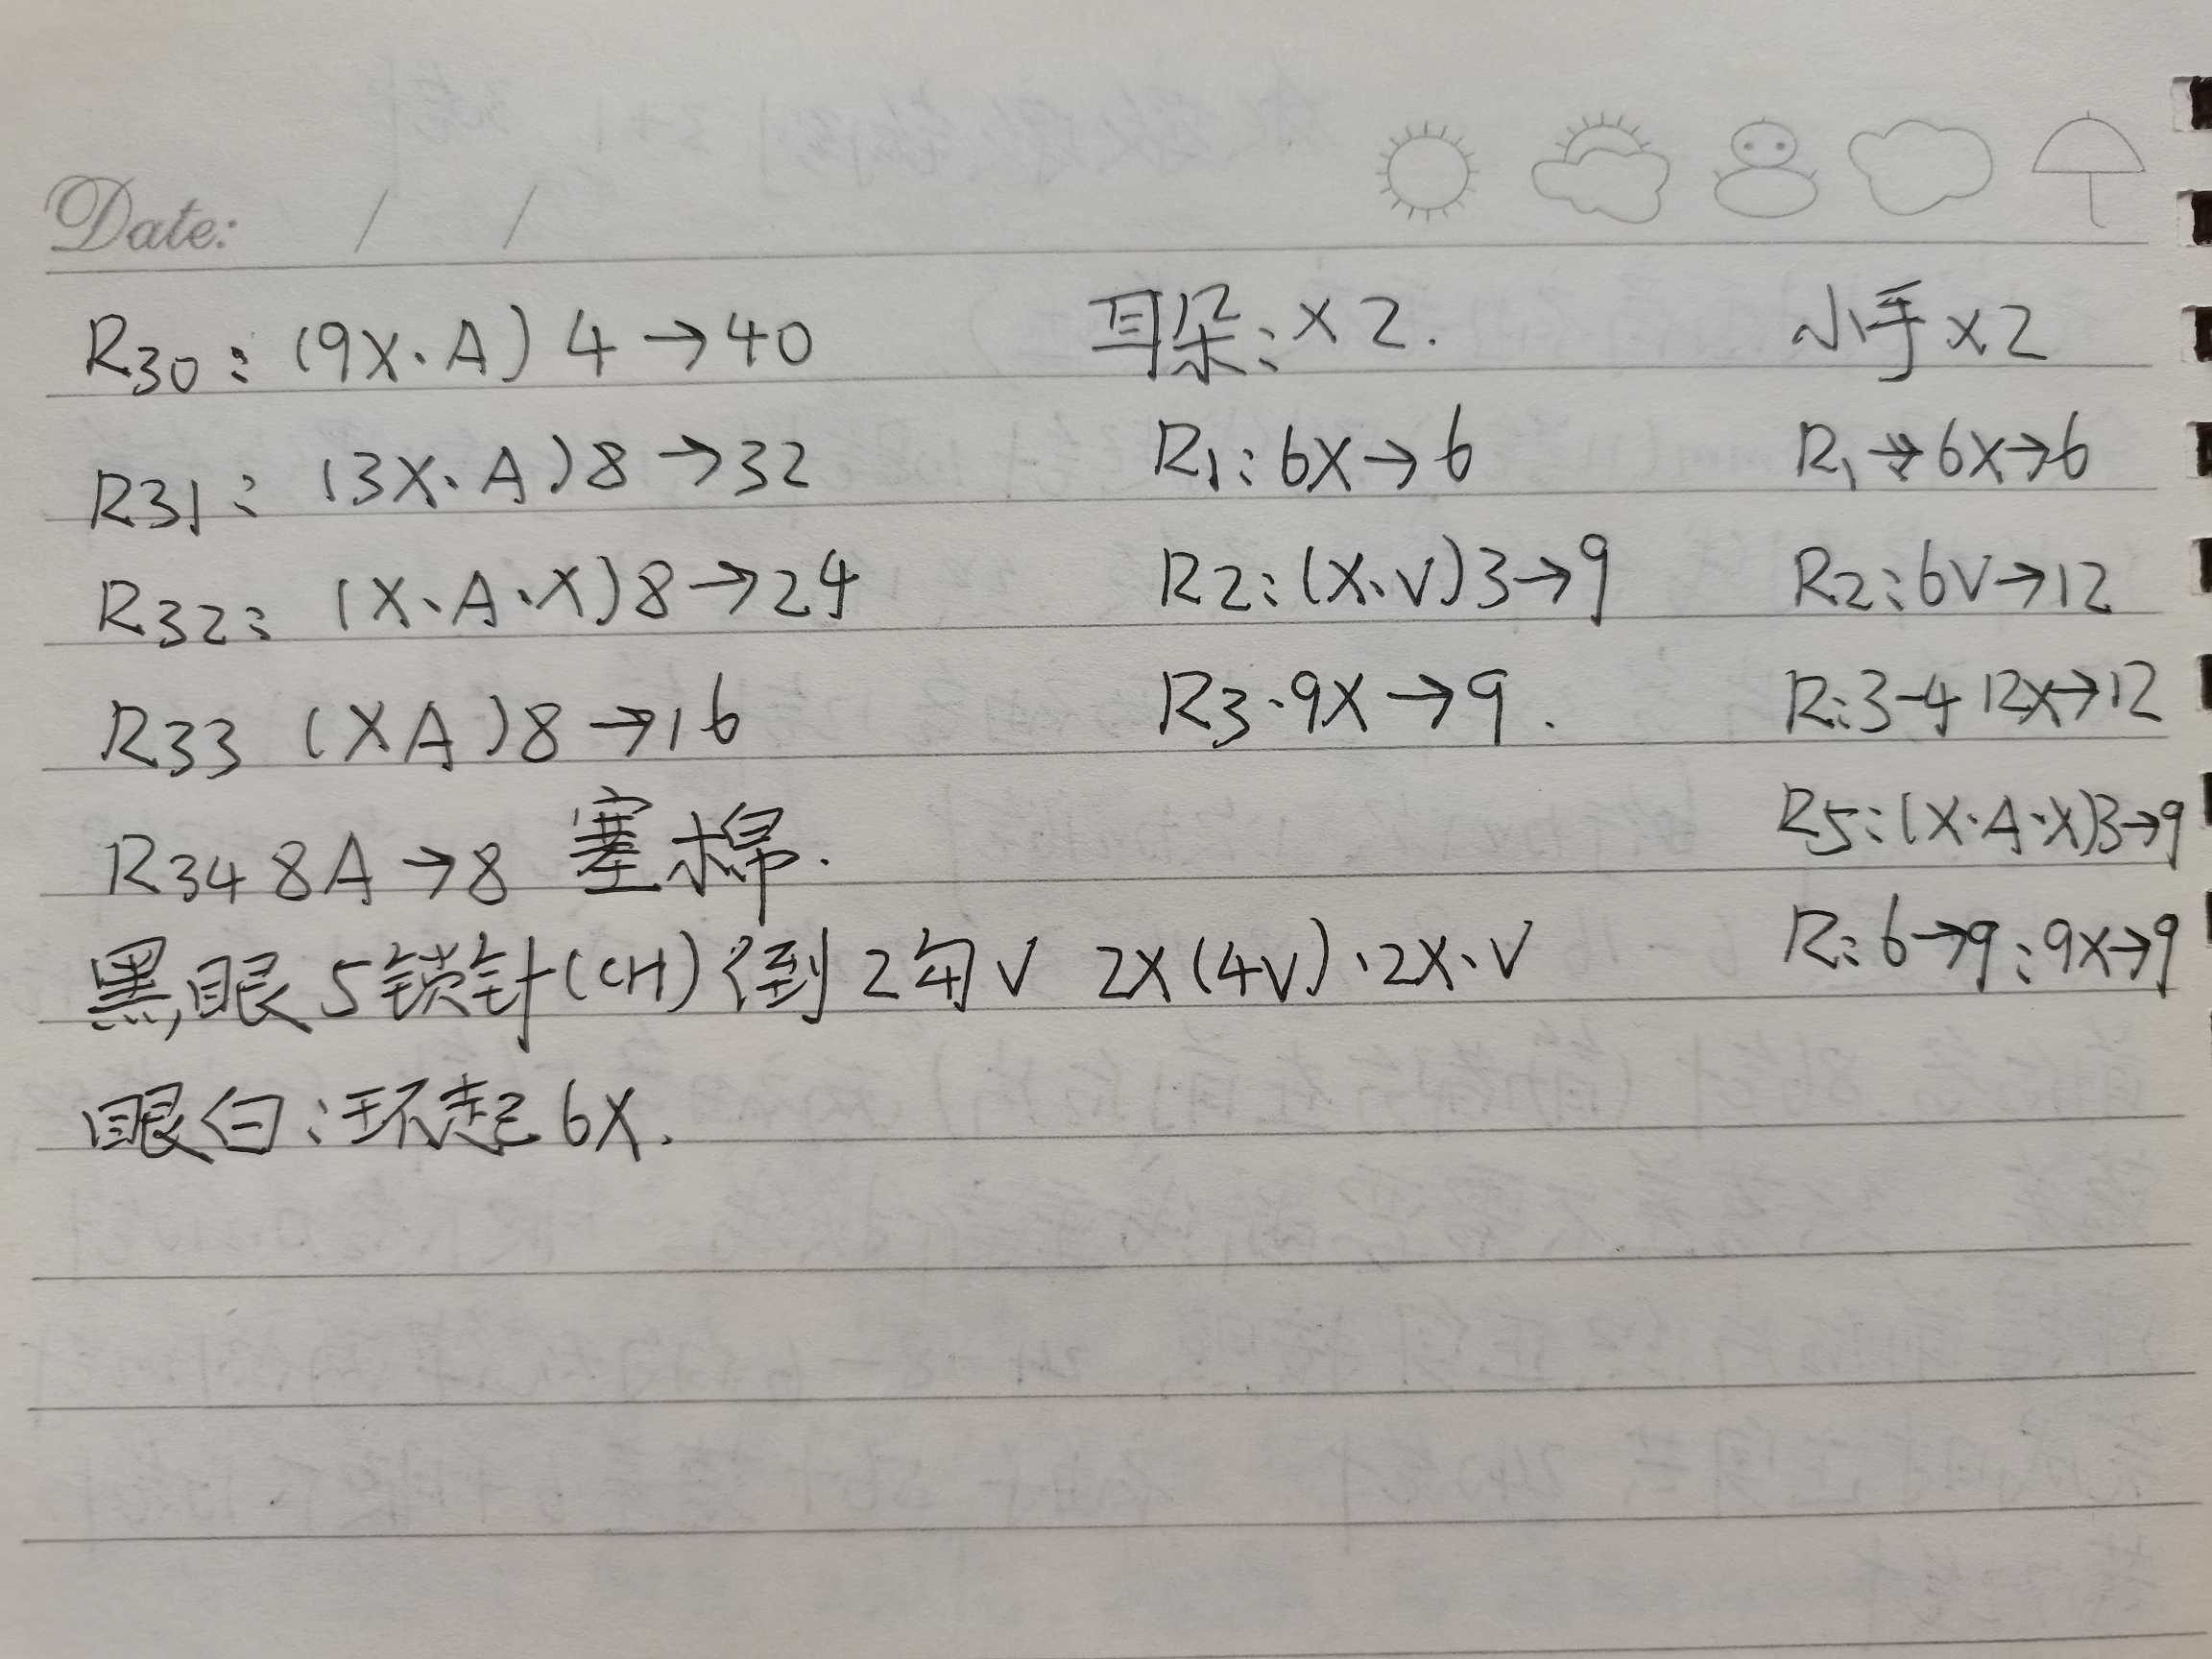 Date: / /
R30: (9X·A)4→40
R31: (3X·A)8→32
R32: (X·A·X)8→24
R33 (XA)8→16
R34 8A→8 塞棉.
黑眼5锁针(CH)倒2勾V 2X(4V)·2X·V
眼白:环起6X.
耳朵:×2.
R1:6X→6
R2:(X·V)3→9
R3·9X→9.
小手×2
R1→6X→6
R2:6V→12
R:3-4 12X→12
R5:(X·A·X)3→9
R:6→9:9X→9